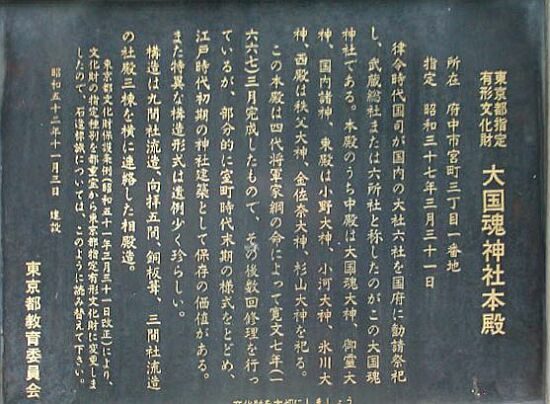 東京都指定
有形文化財
大国魂神社本殿
所在 府中市宮町三丁目一番地
指定 昭和三十七年三月三十一日
律令時代国司が国内の大社六社を国府に勧請祭祀
し、武蔵総社または六所社と称したのがこの大国魂
神社である。本殿のうち中殿は大国魂大神、御霊大
神、国内諸神、東殿は小野大神、小河大神、氷川大
神、西殿は秩父大神、金佐奈大神、杉山大神を祀る。
この本殿は四代将軍家綱の命によって寛文七年(一
六六七)三月完成したもので、その後数回修理を行っ
ているが、部分的に室町時代末期の様式をとどめ、
江戸時代初期の神社建築として保存の価値がある。
また特異な構造形式は遺例少く珍らしい。
構造は九間社流造、向拝五間、銅板葺、三間社流造
の社殿三棟を横に連絡した相殿造。
東京都文化財保護条例(昭和五十一年三月三十一日改正)により、
文化財の指定種別を都重宝から東京都指定有形文化財に変更しま
したので、石造標識については、このように読み替えて下さい。
昭和五十二年十一月三日 建設
東京都教育委員会
文化財を大切にしましょう